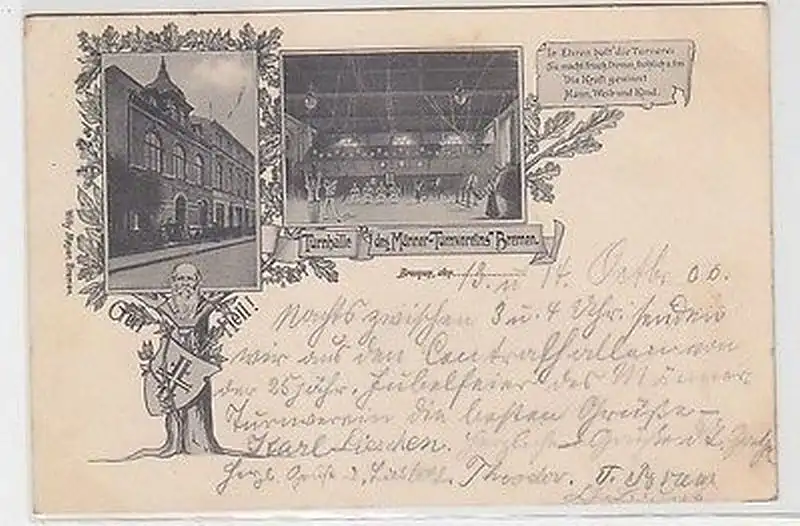 In Ehren halt' die Turnerei
Sie macht frisch, fromm, fröhlich u. frei
Die Kraft gewinnt
Mann, Weib und Kind.
Turnhalle des Männer-Turnvereins Bremen.
Bremen, den 13. u 14. Octbr. 00.
Gut Heil!
Nachts zwischen 3 u. 4 Uhr. senden
wir aus den Centralhallen von
der 25 jähr. Jubelfeier des Männer
Turnverein die besten Grüße –
Karl Lieschen. Herzliche Grüße
Herzl. Grüße Theodor.